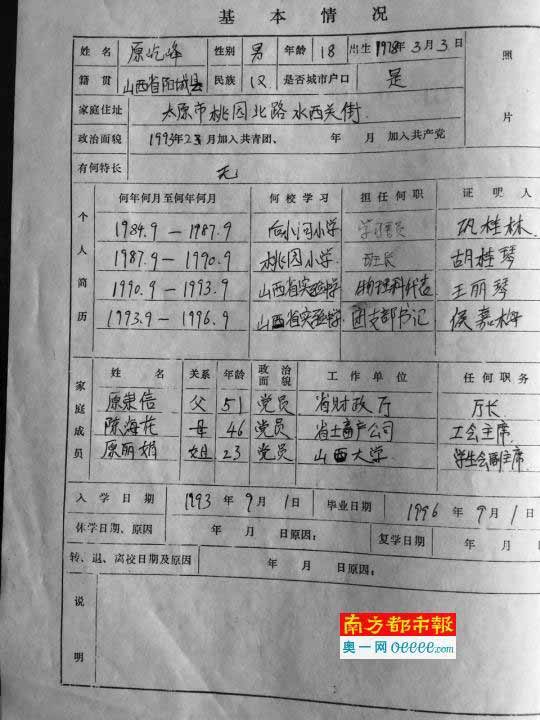 基本情况
姓名 原屹峰 性别 男 年龄 18 出生 1978年3月3日
照片
籍贯 山西省阳城县 民族 汉 是否城市户口 是
家庭住址 太原市桃园北路水西关街
政治面貌 1993年2月加入共青团、 年 月加入共产党
有何特长 无
个人简历
何年何月至何年何月 何校学习 担任何职 证明人
1984.9—1987.9 后小河小学 学习委员 巩桂林
1987.9—1990.9 桃园小学 班长 胡桂琴
1990.9—1993.9 山西省实验中学 物理科代表 王丽琴
1993.9—1996.9 山西省实验中学 团支部书记 侯嘉梅
家庭成员
姓名 关系 年龄 政治面貌 工作单位 任何职务
原崇信 父 51 党员 省财政厅 厅长
陈海花 母 46 党员 省土畜产公司 工会主席
原丽娟 姐 23 党员 山西大学 学生会副主席
入学日期 1993年9月1日 毕业日期 1996年9月1日
休学日期、原因 年 月 日原因: 复学日期 年 月 日
转、退、离校日期及原因 年 月 日原因:
说明
南方都市報
奥一网 oeeee.com